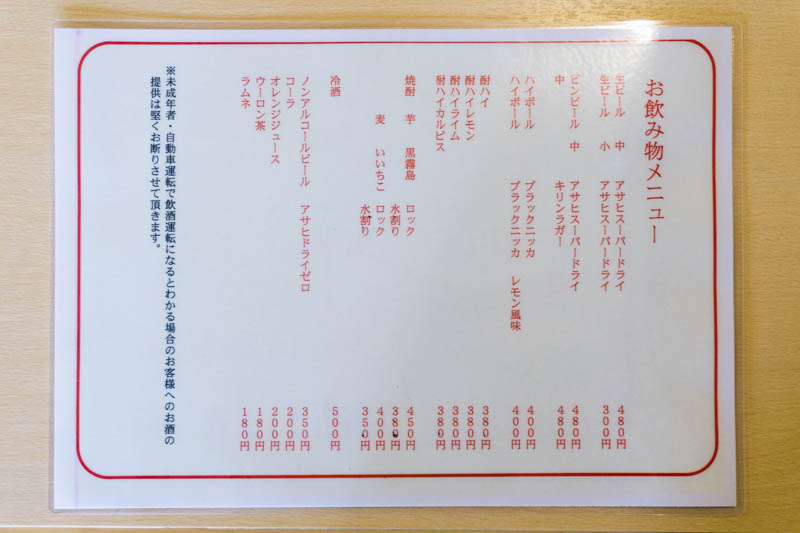 お飲み物メニュー
生ビール 中 アサヒスーパードライ 480円
生ビール 小 アサヒスーパードライ 300円
ビンビール 中 アサヒスーパードライ 480円
中 キリンラガー 480円
ハイボール ブラックニッカ 400円
ハイボール ブラックニッカ レモン風味 400円
酎ハイ 380円
酎ハイレモン 380円
酎ハイライム 380円
酎ハイカルピス 380円
焼酎 芋 黒霧島 ロック 450円
水割り 380円
麦 いいちこ ロック 400円
水割り 350円
冷酒 500円
ノンアルコールビール アサヒドライゼロ 350円
コーラ 200円
オレンジジュース 200円
ウーロン茶 180円
ラムネ 180円
※未成年者・自動車運転で飲酒運転になるとわかる場合のお客様へのお酒の
提供は堅くお断りさせて頂きます。